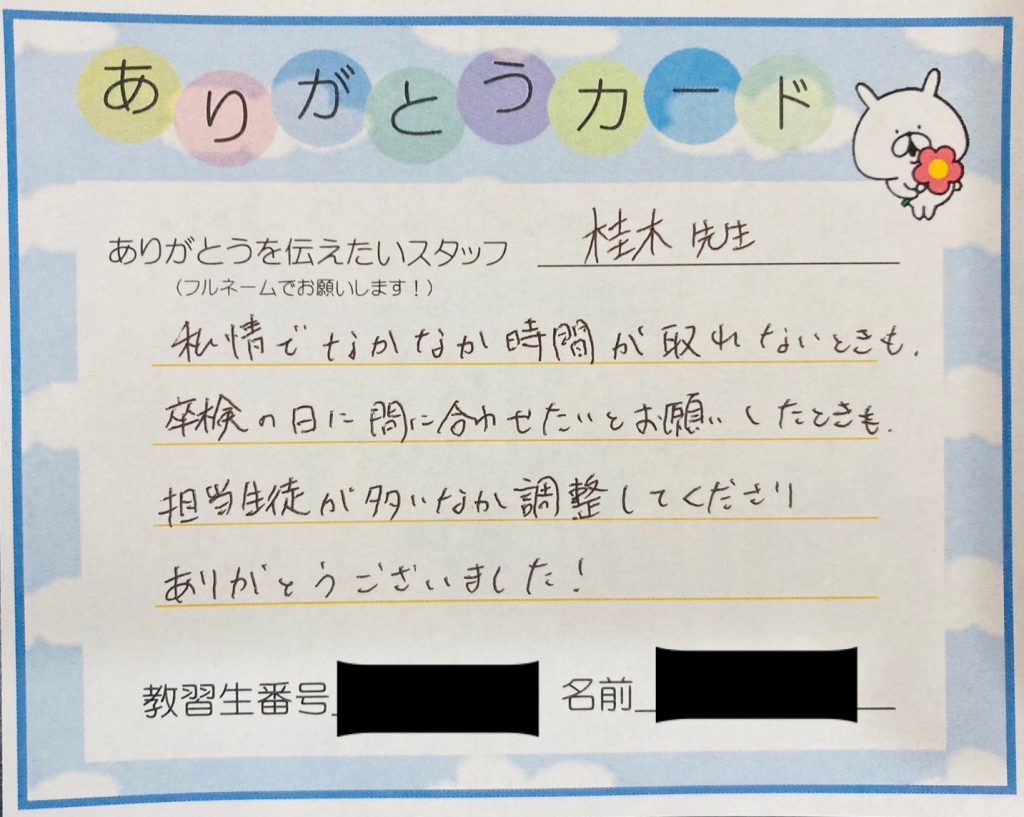 ありがとうカード
ありがとうを伝えたいスタッフ 桂木 先生
(フルネームでお願いします!)
私情でなかなか時間が取れないときも、
卒検の日に間に合わせたいとお願いしたときも、
担当生徒が多いなか調整してくださり
ありがとうございました!
教習生番号 名前